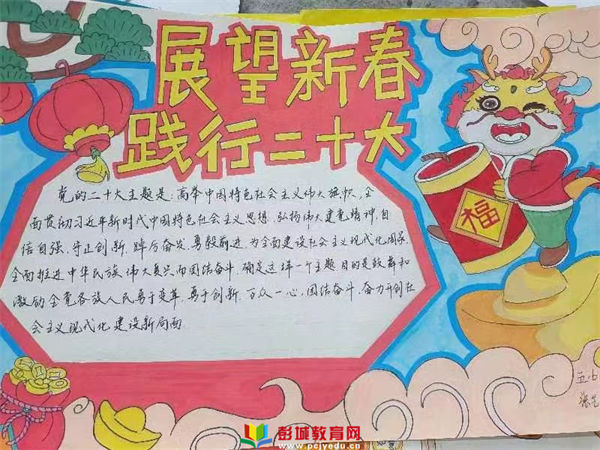 展望新春
践行二十大
党的二十大主题是:高举中国特色社会主义伟大旗帜,全
面贯彻习近平新时代中国特色社会主义思想,弘扬伟大建党精神,自
信自强、守正创新,踔厉奋发、勇毅前进,为全面建设社会主义现代化国家、
全面推进中华民族伟大复兴而团结奋斗,确定这样一个主题目的是鼓舞和
激励全党各族人民勇于变革、勇于创新,万众一心,团结奋斗,奋力开创在
会主义现代化建设新局面
福
彭城教育网
www.pcjyedu.cn